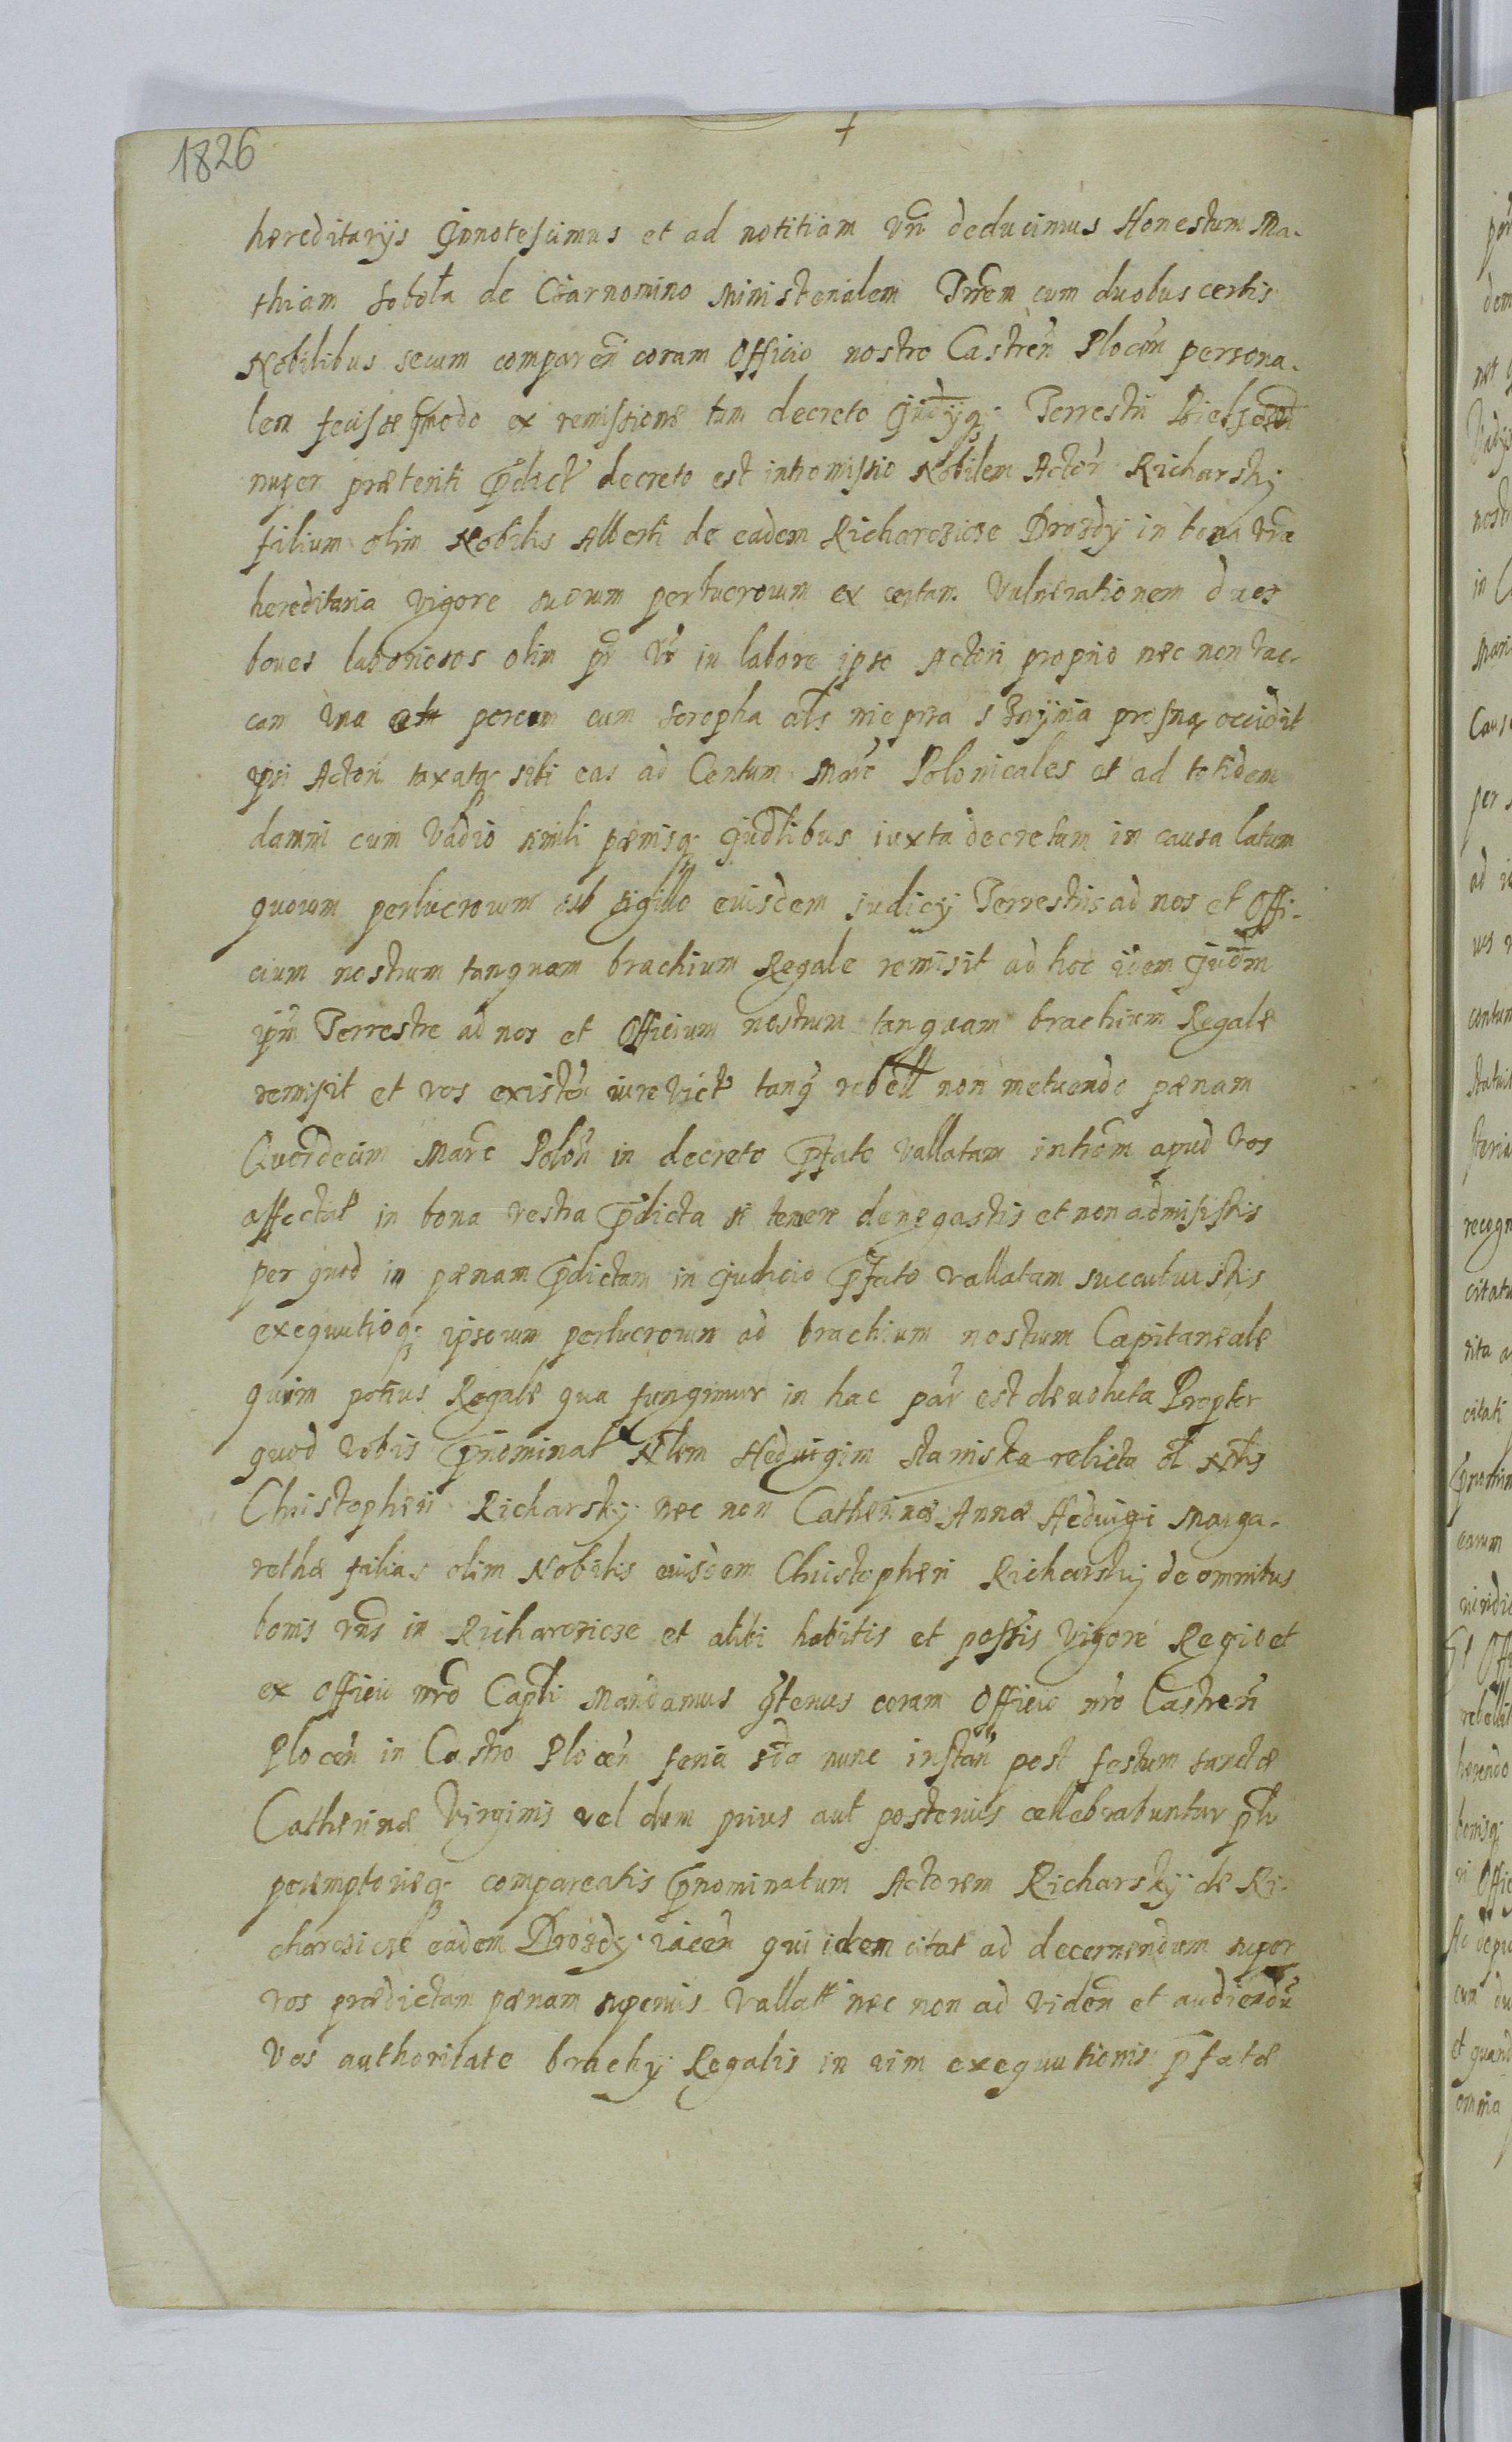 1826
hæreditarÿs Innotescimus et ad notitiam vrã deducimus Honestum Ma-
thiam Sobota de Czarnomino Ministerialem Trrem cum duobus certis
Nobilibus secum comparen̄ coram Officio nostro Castren̄ Plocen̄ persona-
lem fecisse quodo ex remissione tum decreto Judÿq; Terrestri Bielscen̄
nuper præteriti p̄dict decreto est intromissio Nobilem Actor Richarskÿ
filium olim Nobilis Alberti de eadem Richarczicze Drozdÿ in bona vrã
hereditaria vigore suorum perlucrorum ex certam Vulnerationem duos
boues laboriosos olim pr Vr in labore ipso Actori proprio nec non vac-
cam una porcum cum scropha als nieprza s swÿnia prosną occidit
ipsi Actori taxatq sibi eas ad Centum Marc Polonicales et ad totidem
damni cum Vadio simili pænisq Judlibus iuxta decretum in causa latum
quorum perlucrorum sub sigillo eiusdem iudicÿ Terrestris ad nos et Offi-
cium nostrum tanquam brachium Regale remisit ad hoc idem Judm
ipm̄ Terrestre ad nos et Officium nostrum tanquam brachium Regale
remisit et vos existen̄ iure vict tanq̄ rebell non metuendo pænam
Quordecim Marc Polon̄ in decreto p̄fato vallatam introm apud vos
affectat in bona vestra p̄dicta denegastis et non admisistis
per quod in pænam p̄dictam in Judicio p̄fato vallatam succubuistis
exequutioq; ipsorum perlucrorum ad brachium nostrum Capitaneale
quim potius Regale qua fungimur in hac par est deuoluta Propter
quod vobis p̄nominat Nlem Heduigim Staniska relicta ol Nlis
Christopheri Richarskÿ nec non Catherinæ Annæ Heduigi Marga-
rethæ filias olim Nobilis eiusdem Christopheri Richarskÿ de omnibus
bonis vris in Richarczicze et alibi habitis et possis vigore Regio et
ex officio nrō Capli Mandamus q̄tenus coram Officio nrō Castren̄
Plocen̄ in Castro Plocen̄ feria sda nunc instan̄ post festum sanctæ
Catherinæ Virginis vel dum prius aut posterius cellebrabuntur plr
peremptorieq; compareatis p̄nominatum Actorem Richarskÿ de Ri-
charczicze eadem Drozdÿ iacen̄ qui idem citat ad decernendum super
vos prædictam pænam superius vallat nec non ad viden̄ et audiendū
Vos authoritate brachÿ Regalis in vim exequutionis p̄fatæ